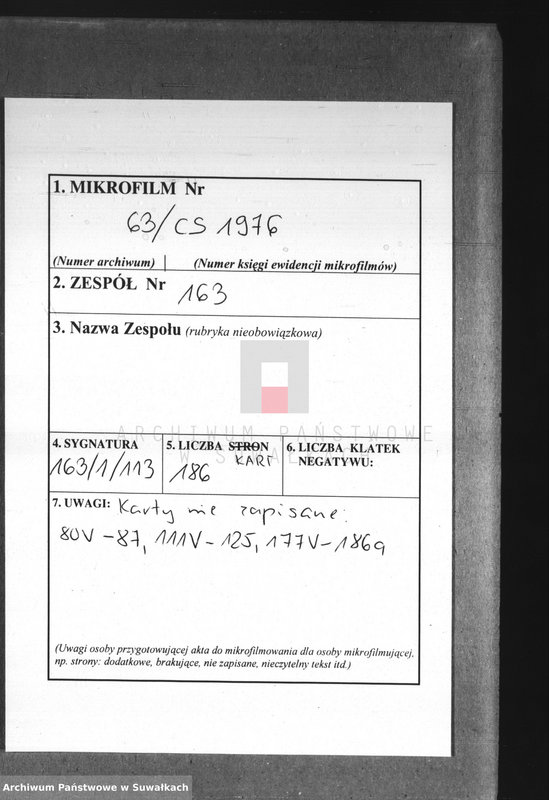 1. MIKROFILM Nr
63/CS 1976
(Numer archiwum) (Numer księgi ewidencji mikrofilmów)
2. ZESPÓŁ Nr 163
3. Nazwa Zespołu (rubryka nieobowiązkowa)
ARCHIWUM PAŃSTWOWE
W SUWAŁKACH
4. SYGNATURA
163/1/113
5. LICZBA STRON
KART
186
6. LICZBA KLATEK
NEGATYWU:
7. UWAGI: Karty nie zapisane:
80V-87, 111V-125, 177V-186a
(Uwagi osoby przygotowującej akta do mikrofilmowania dla osoby mikrofilmującej,
np. strony: dodatkowe, brakujące, nie zapisane, nieczytelny tekst itd.)
Archiwum Państwowe w Suwałkach